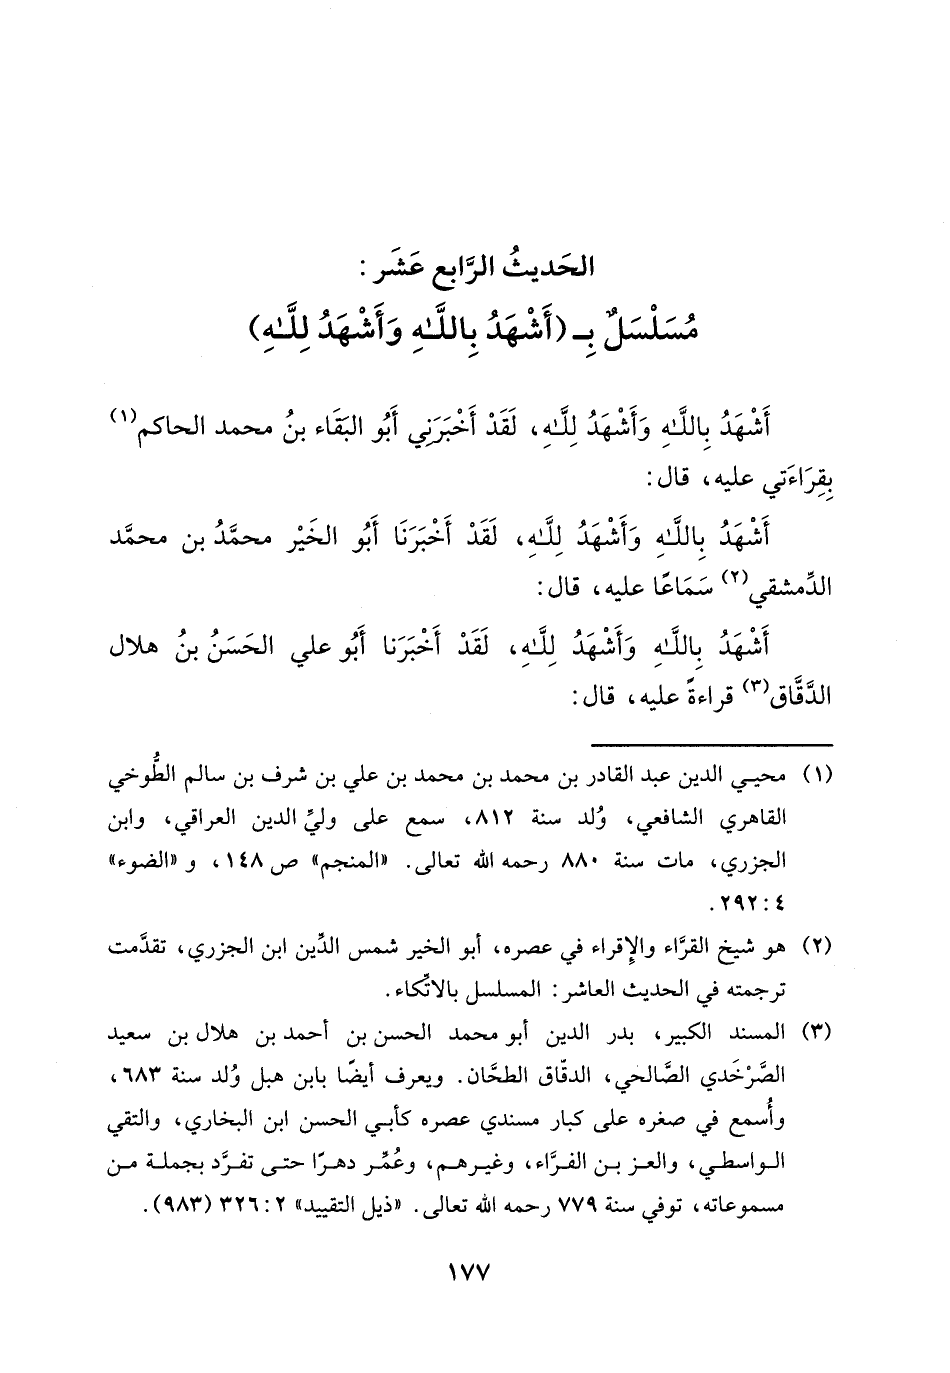 الحَديثُ الرَّابع عَشَر :
مُسَلْسَلٌ بِـ (أَشْهَدُ بِاللَّهِ وَأَشْهَدُ لِلَّهِ)
أَشْهَدُ بِاللَّهِ وَأَشْهَدُ لِلَّهِ، لَقَدْ أَخْبَرَنِي أَبُو البَقَاء بنُ محمد الحاكم(١)
بِقِرَاءَتي عليه، قال:
أَشْهَدُ بِاللَّهِ وَأَشْهَدُ لِلَّهِ، لَقَدْ أَخْبَرَنَا أَبُو الخَيْر محمَّدُ بن محمَّد
الدِّمشقي(٢) سَمَاعًا عليه، قال:
أَشْهَدُ بِاللَّهِ وَأَشْهَدُ لِلَّهِ، لَقَدْ أَخْبَرَنا أَبُو علي الحَسَنُ بنُ هلال
الدَّقَّاق(٣) قراءةً عليه، قال:
(١) محيي الدين عبد القادر بن محمد بن محمد بن علي بن شرف بن سالم الطُّوخي
القاهري الشافعي، وُلد سنة ٨١٢، سمع على وليِّ الدين العراقي، وابن
الجزري، مات سنة ٨٨٠ رحمه الله تعالى. «المنجم» ص ١٤٨، و «الضوء»
٤ : ٢٩٢.
(٢) هو شيخ القرَّاء والإقراء في عصره، أبو الخير شمس الدِّين ابن الجزري، تقدَّمت
ترجمته في الحديث العاشر : المسلسل بالاتِّكاء.
(٣) المسند الكبير، بدر الدين أبو محمد الحسن بن أحمد بن هلال بن سعيد
الصَّرْخَدي الصَّالحي، الدقّاق الطحَّان. ويعرف أيضًا بابن هبل وُلد سنة ٦٨٣،
وأُسمع في صغره على كبار مسندي عصره كأبي الحسن ابن البخاري، والتقي
الواسطي، والعز بن الفرَّاء، وغيرهم، وعُمِّر دهرًا حتى تفرَّد بجملة من
مسموعاته، توفي سنة ٧٧٩ رحمه الله تعالى. «ذيل التقييد» ٢ : ٣٢٦ (٩٨٣).
١٧٧